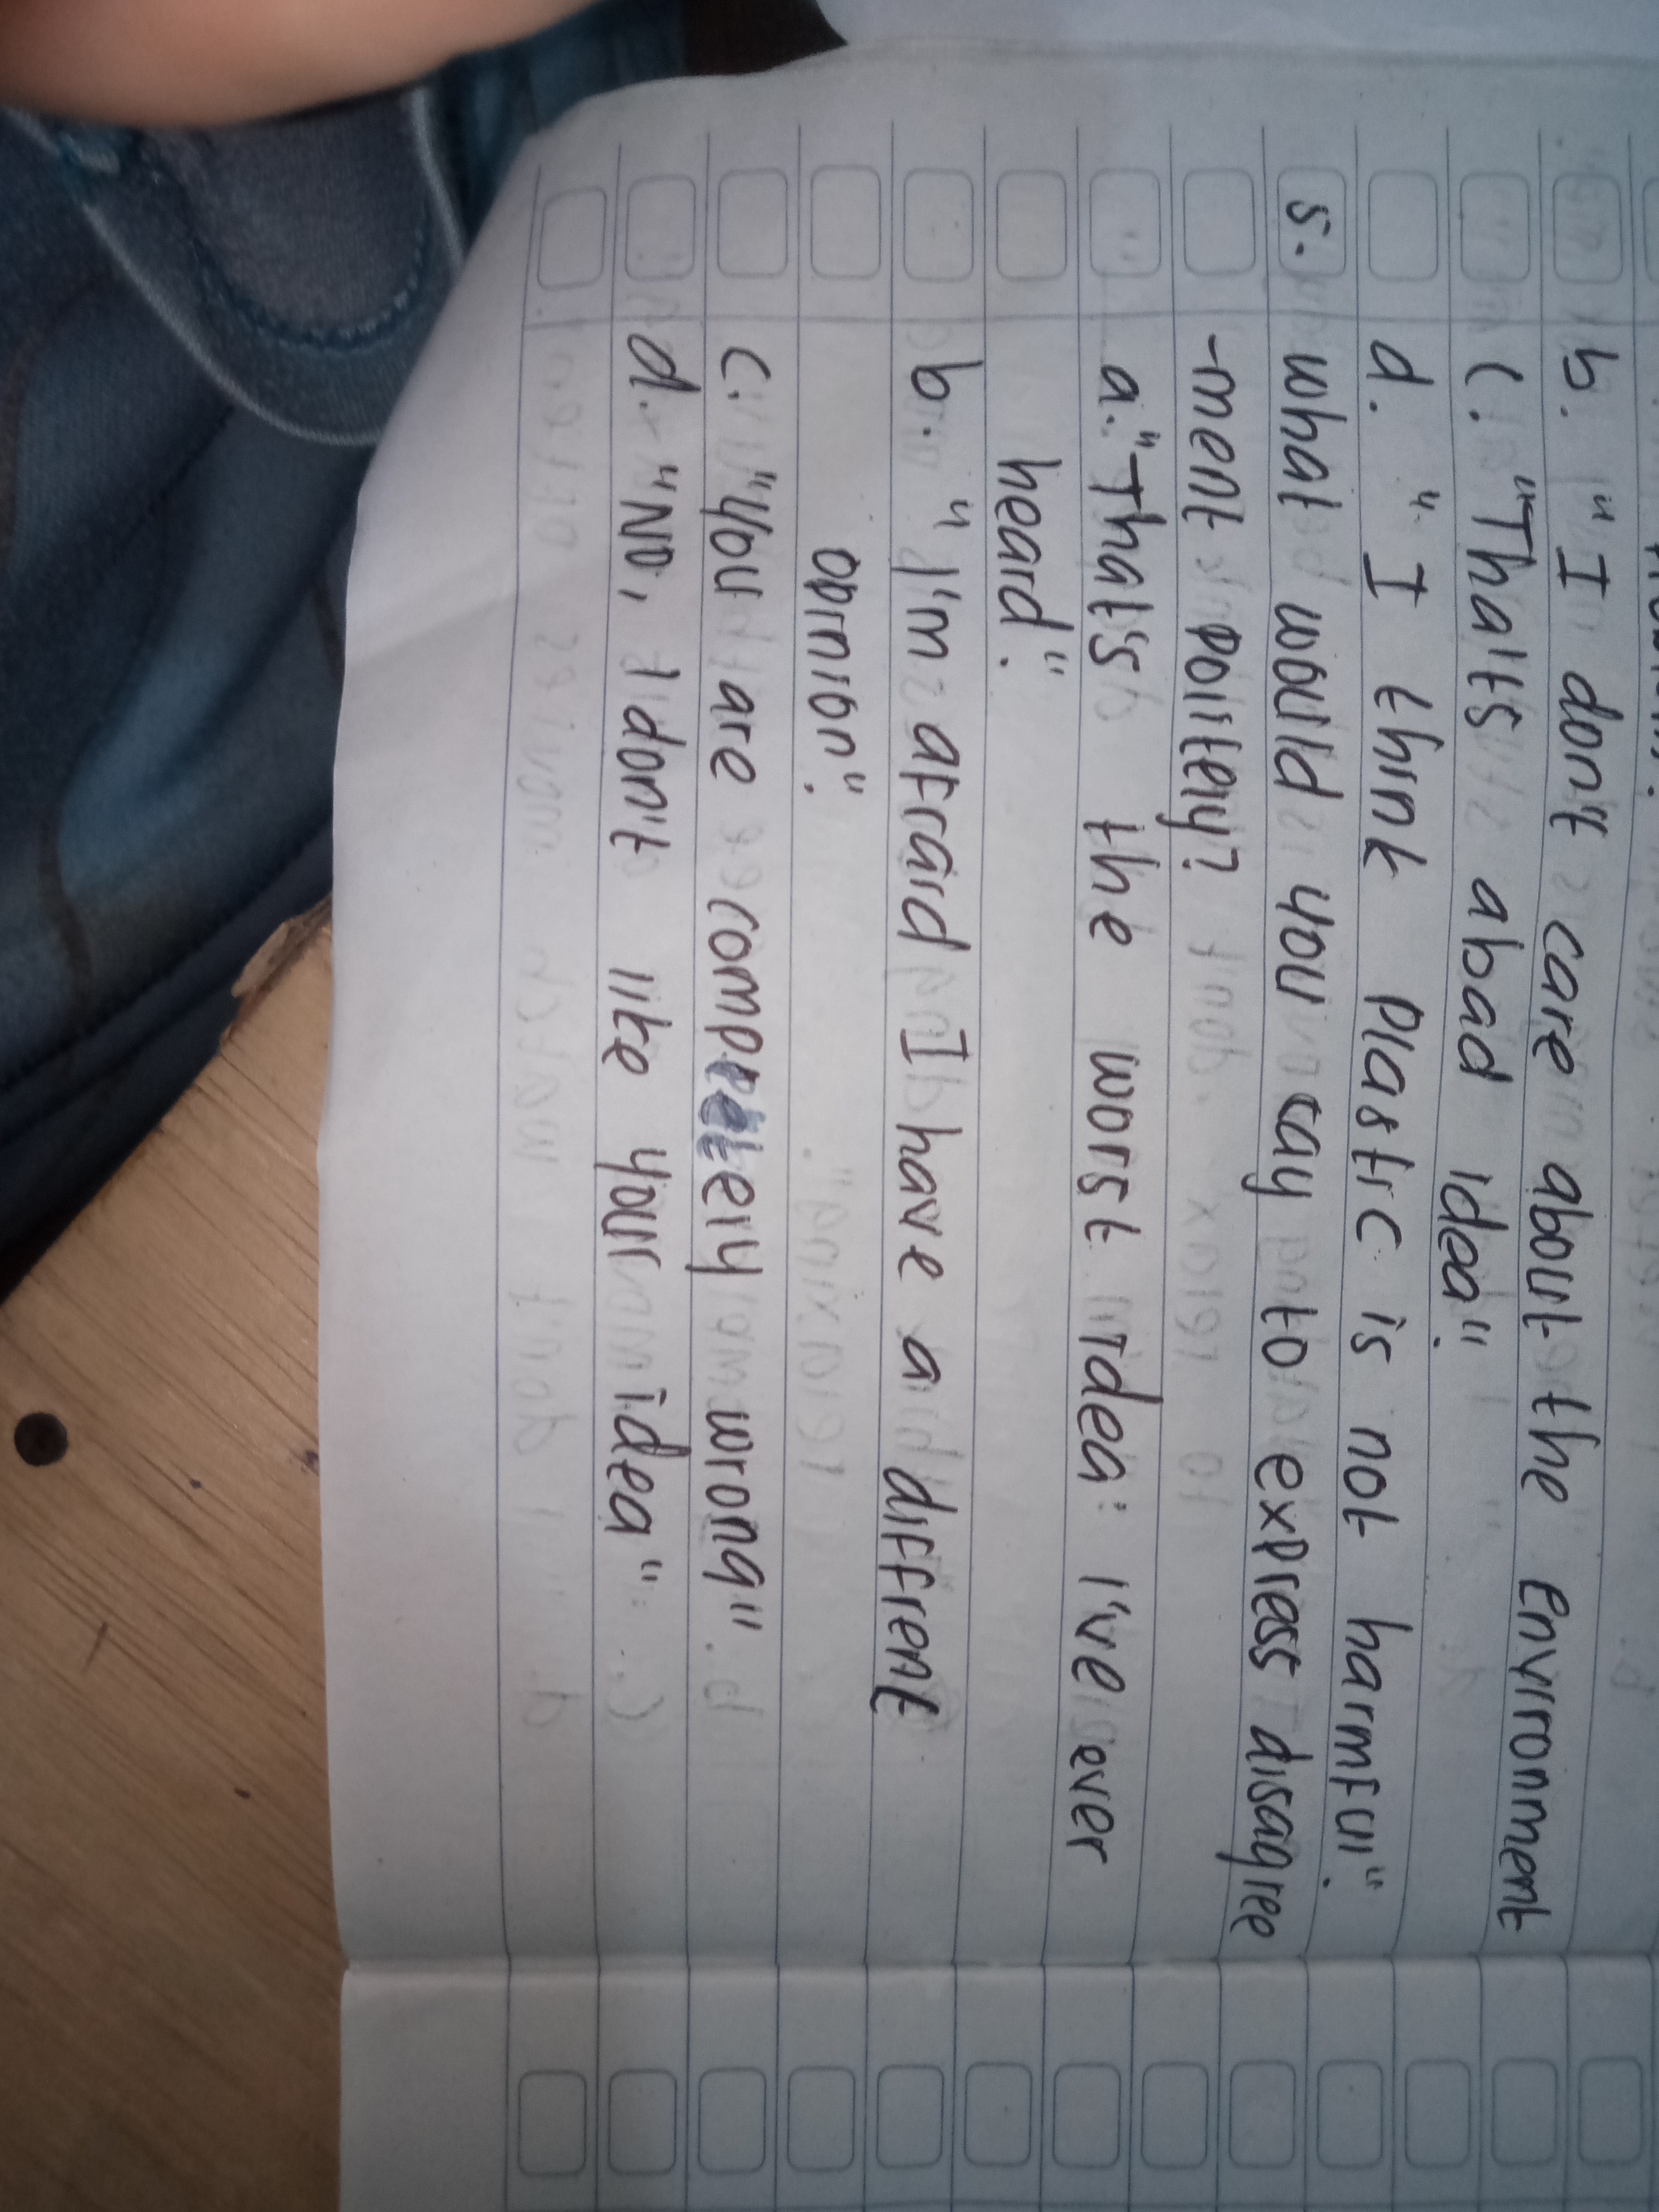 b. "I don't care about the environment
c. "That's abad idea".
d. "I think plastic is not harmful".
5. what would you cay to express disagree
-ment politely?
a. "That's the worst idea I've ever
heard".
b. "I'm afraid I have a diffrent
opinion".
c. "You are completely wrong".
d. "No, I don't like your idea"